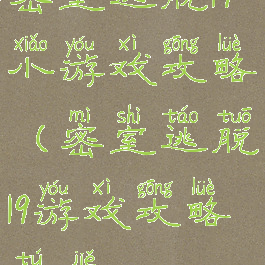 密室逃脱19
xiǎo yóu xì gōng lüè
小游戏攻略
mì shì táo tuō
(密室逃脱
yóu xì gōng lüè
19游戏攻略
tú jiě